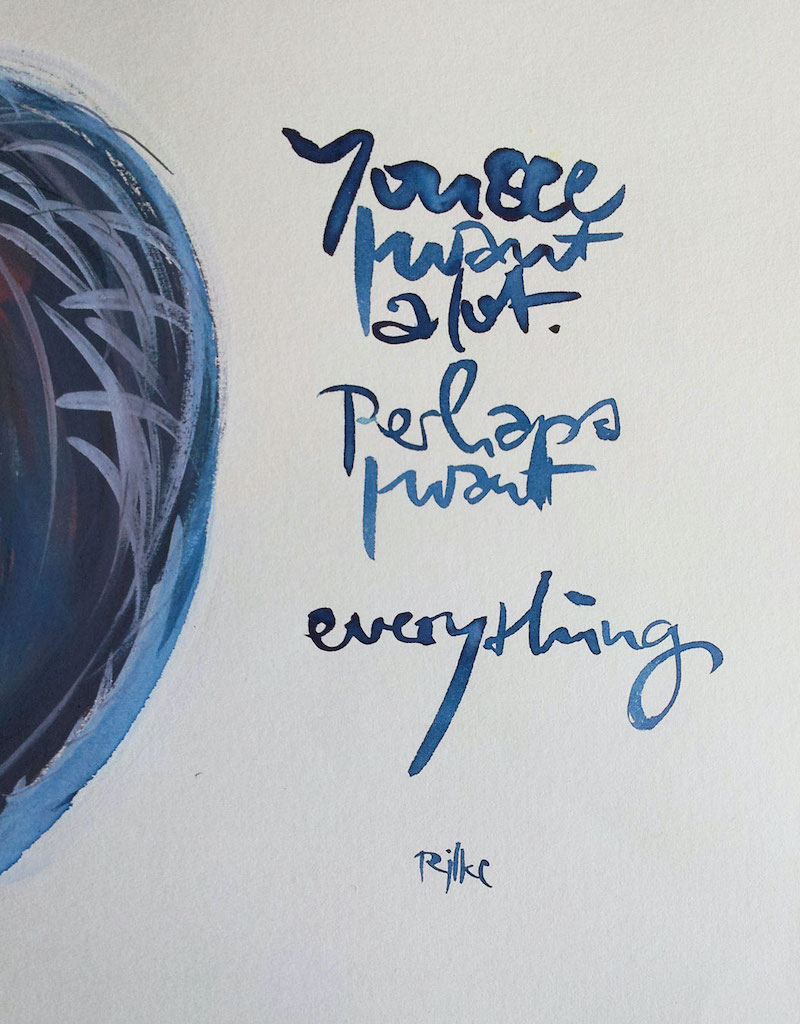 You see
I want
a lot.
Perhaps
I want
everything
Rilke